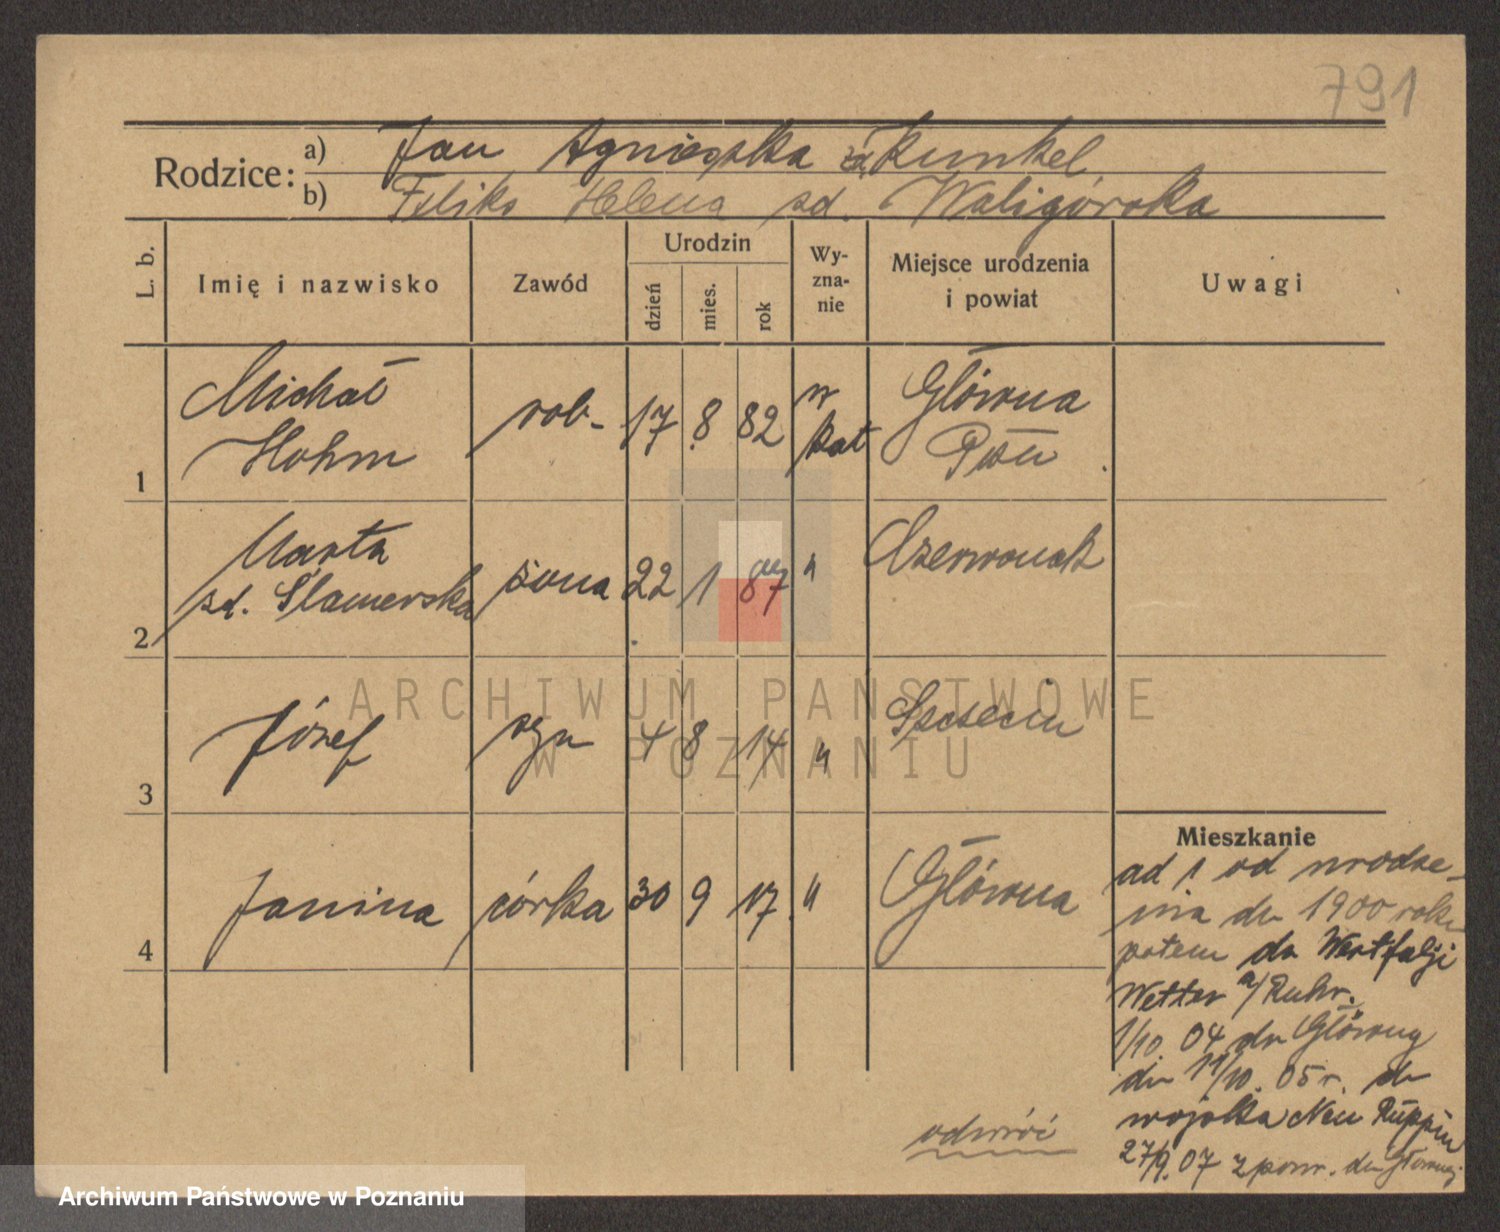 791
Rodzice: a) Jan Agnieszka zd. Kunkel
b) Feliks Helena zd. Waligórska
L. b.
Imię i nazwisko
Zawód
Urodzin
dzień
mies.
rok
Wy-
zna-
nie
Miejsce urodzenia
i powiat
Uwagi
1 Michał
Hohm
rob-
17 8 82
r
kat
Główna
Pozn
2 Marta
zd. Sławerska
żona
22 1 87
"
Czerwonak
3 Józef
syn
4 8 14
"
Szczecin
4 Janina
córka
30 9 17
"
Główna
Mieszkanie
ad 1 od urodze-
nia do 1900 roku
potem do Westfalji
Wetter a/Ruhr.
1/10. 04 do Główny
do 11/10. 05 r. do
wojska Neu Ruppin
27/9. 07 z powr. do Główny
odwróć
ARCHIWUM PAŃSTWOWE
W POZNANIU
Archiwum Państwowe w Poznaniu